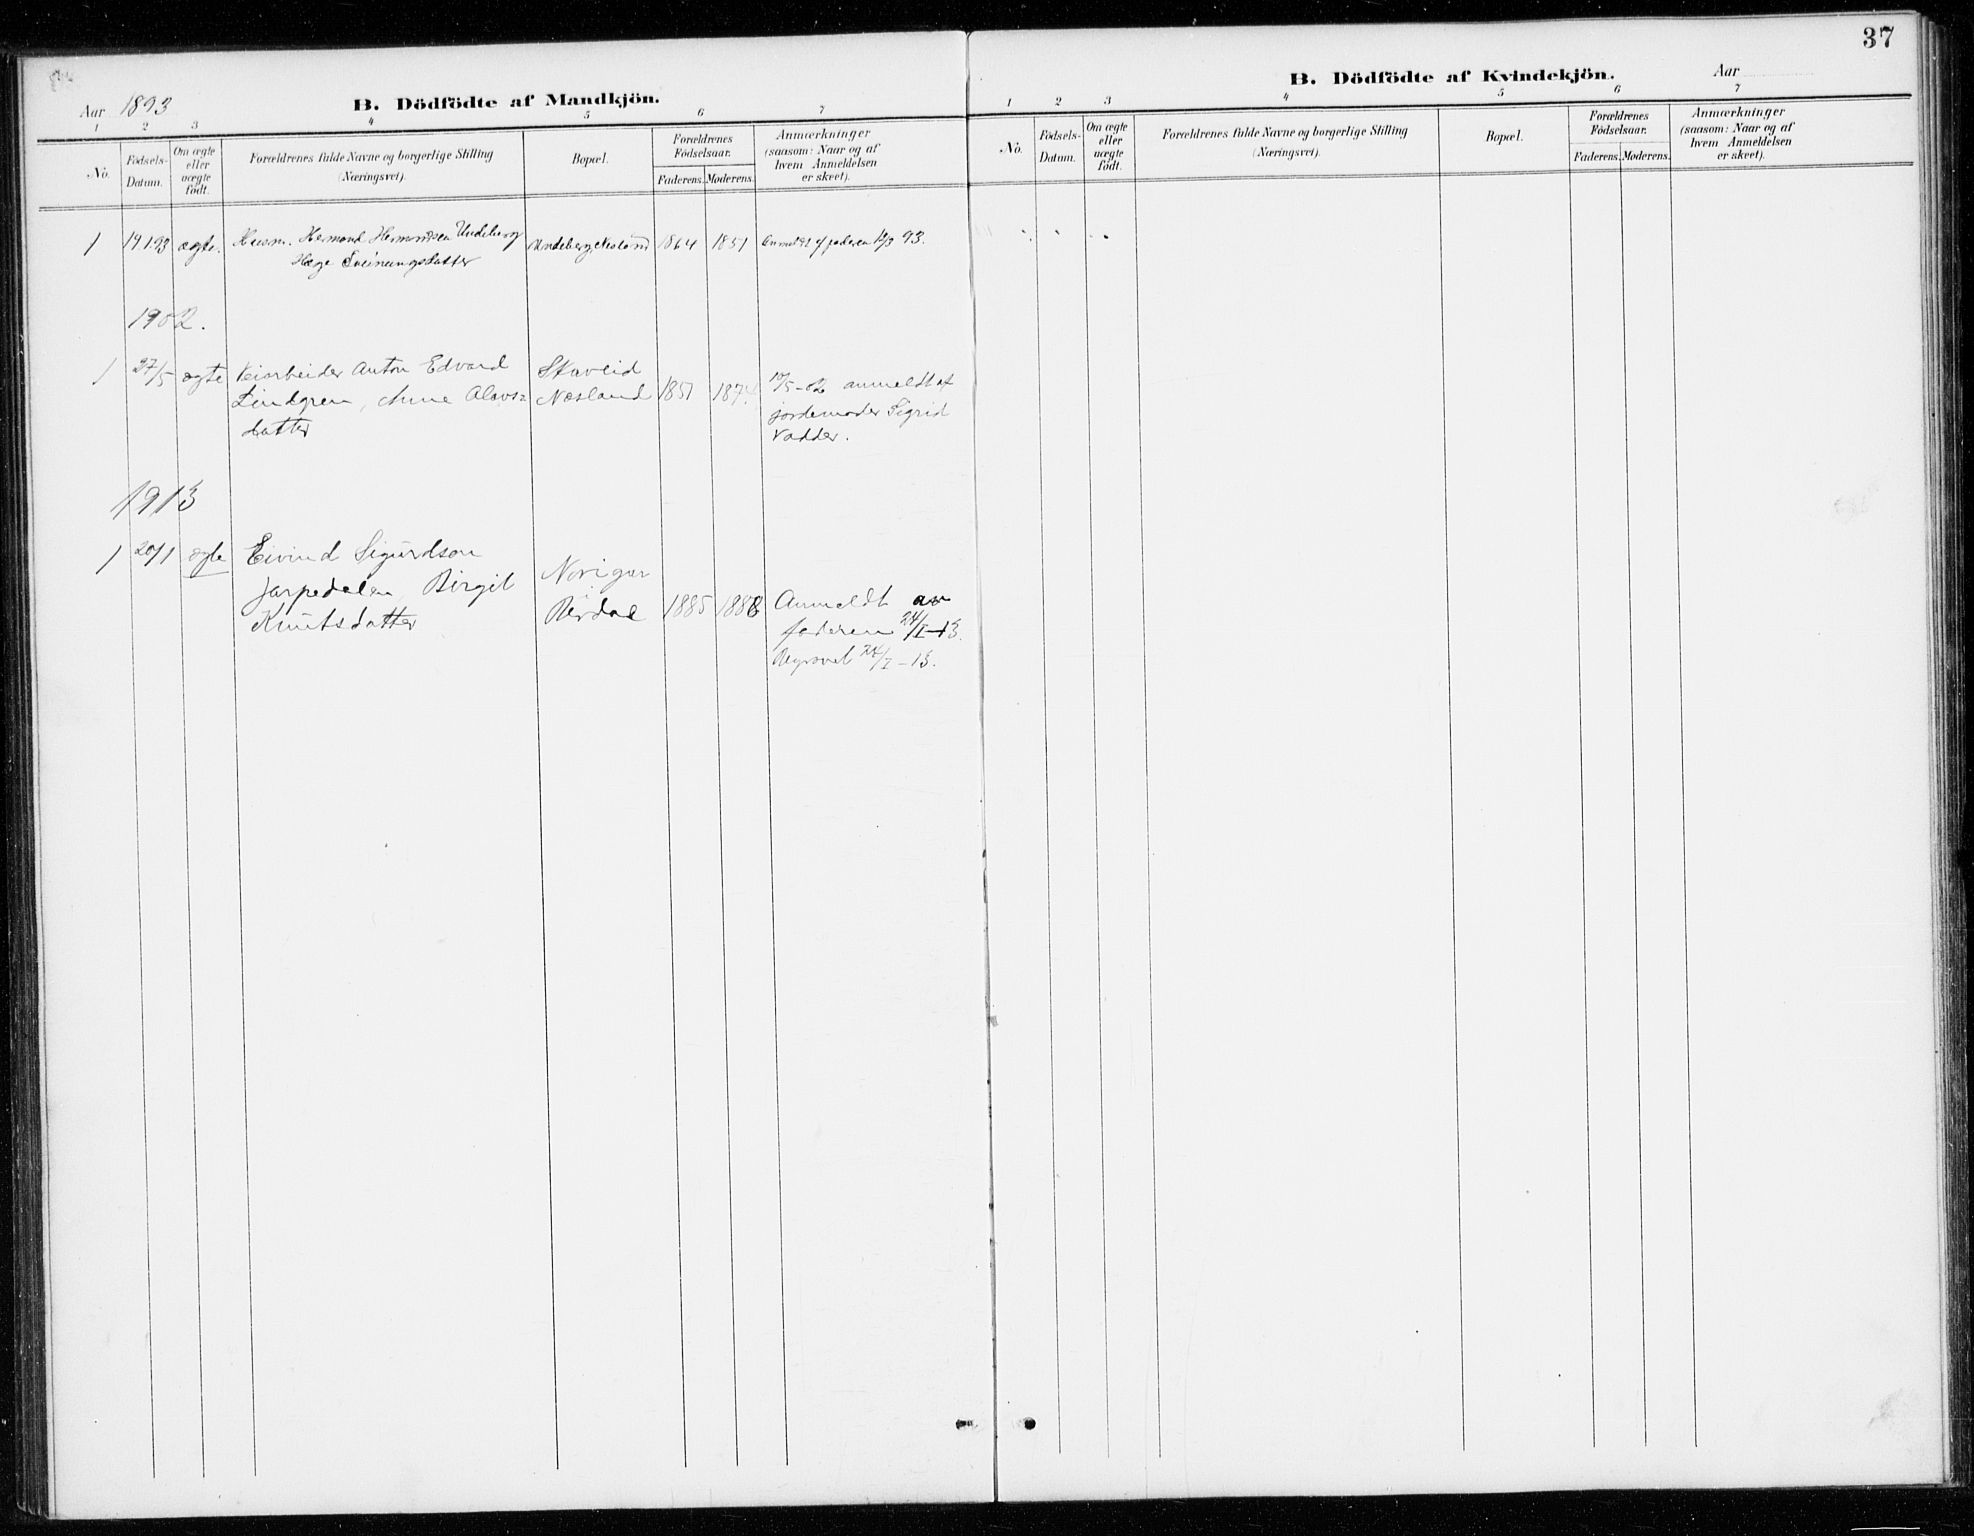 37
Aar 1893
B. Dödfödte af Mandkjön.
1 2 3 4 5 6 7
No.
Födsels-
Datum.
Om ægte
eller
uægte
födt.
Forældrenes fulde Navne og borgerlige Stilling
(Næringsvei).
Bopæl.
Forældrenes
Födselsaar.
Faderens. Moderens.
Anmærkninger
(saasom: Naar og af
hvem Anmeldelsen
er skeet).
1 19 1.93 ægte. Husm. Hermond Hermondsen Undeberg Undeberg Nesland 1864 1851 Anmeldt af faderen 12/3 93.
Hæge Sveinungsdatter
1902.
1 27/5 ægte Veiarbeider Anton Edvard Skaveid 1851 1874 10/5-02 anmeldt af
Lindgren, Anne Olavs= Nesland jordemoder Sigrid
datter Vadder.
1913
1 20/1 ægte Eivind Sigurdson Norigar
Jarpedalen Birgit Berdal 1885 1888 Anmeldt av
Knutsdatter faderen 24/I-13.
24/I-13.
B. Dödfödte af Kvindekjön.
Aar
1 2 3 4 5 6 7
No.
Födsels-
Datum.
Om ægte
eller
uægte
födt.
Forældrenes fulde Navne og borgerlige Stilling
(Næringsvei).
Bopæl.
Forældrenes
Födselsaar.
Faderens. Moderens.
Anmærkninger
(saasom: Naar og af
hvem Anmeldelsen
er skeet).